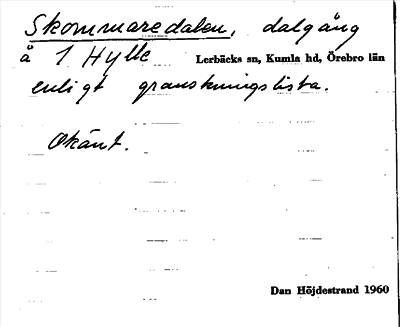 Skommaredalen, dalgång
å 1 Hylle Lerbäcks sn, Kumla hd, Örebro län
enligt granskningslista.
Okänt.
Dan Höjdestrand 1960